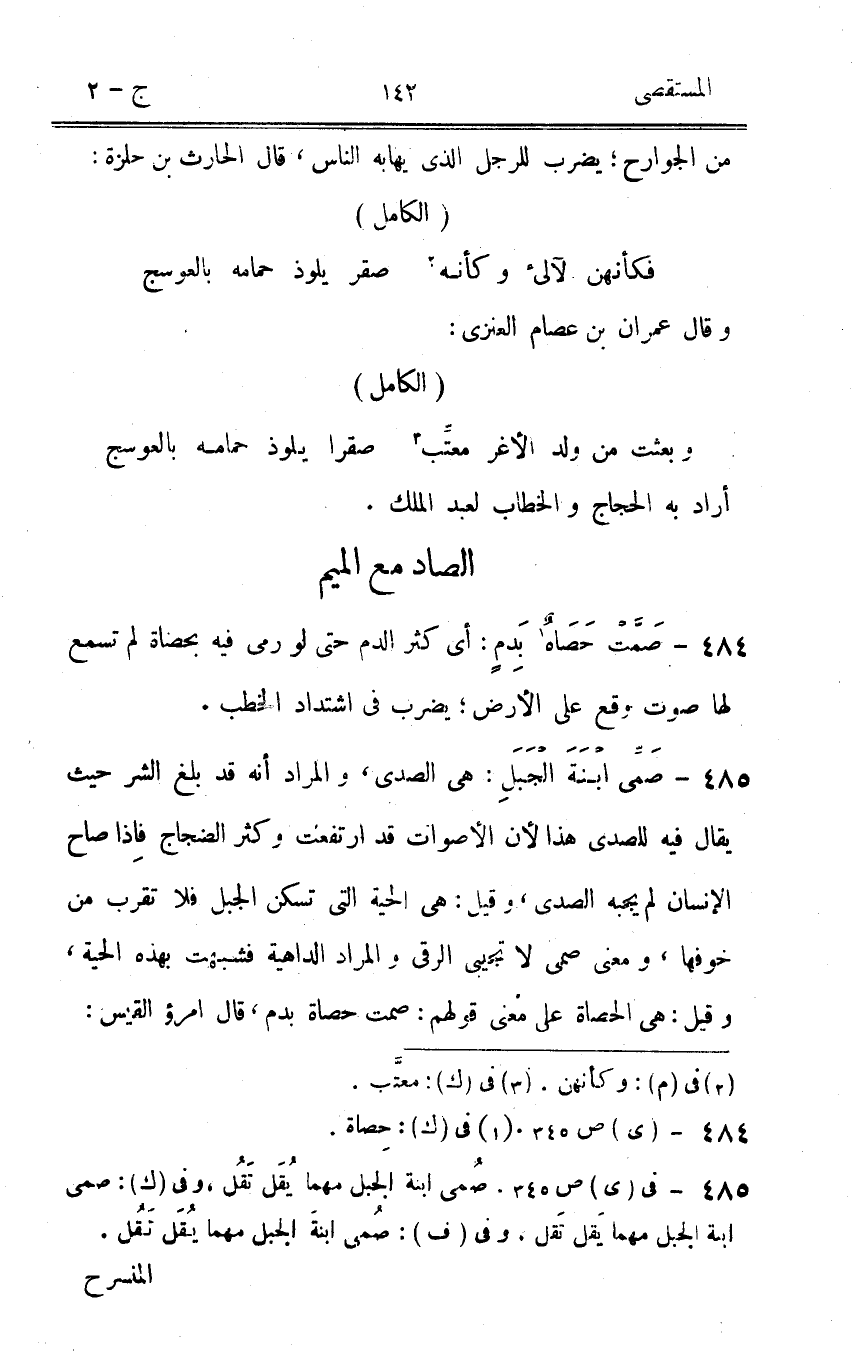 المستقصى ١٤٢ ج - ٢
من الجوارح ؛ يضرب للرجل الذى يهابه الناس ، قال الحارث بن حلزة :
( الكامل )
فكأنهن لآلىء و كأنـه٢ صقر يلوذ حمامه بالعوسج
و قال عمران بن عصام العنزى :
( الكامل )
و بعثت من ولد الأغر معتَّب٣ صقرا يلوذ حمامـه بالعوسج
أراد به الحجاج و الخطاب لعبد الملك .
الصاد مع الميم
٤٨٤ - صَمَّتْ حَصَاةٌ١ بَدِمٍ : أى كثر الدم حتى لو رمى فيه بحصاة لم تسمع
لها صوت وقع على الأرض ؛ يضرب فى اشتداد الخطب .
٤٨٥ - صَمِّى ابْـنَةَ الْجَبَلِ : هى الصدى ، و المراد أنه قد بلغ الشر حيث
يقال فيه للصدى هذا لأن الأصوات قد ارتفعت و كثر الضجاج فإذا صاح
الإنسان لم يجبه الصدى ، و قيل : هى الحية التى تسكن الجبل فلا تقرب من
خوفها ، و معنى صمى لا تجيبى الرقى و المراد الداهية فشبهت بهذه الحية ،
و قيل : هى الحصاة على معْنى قولهم : صمت حصاة بدم ، قال امرؤ القيس :
(٢) فى (م) : و كأنهن . (٣) فى (ك) : معتَّب .
٤٨٤ - ( ى ) ص ٣٤٥ . (١) فى (ك) : حِصاة .
٤٨٥ - فى ( ى ) ص ٣٤٥ . صُمى ابنة الجبل مهما يُقَل تَقُل ، و فى (ك) : صمى
ابنة الجبل مهما يَقل تَقل ، و فى ( ف ) : صُمى ابنةَ الجبل مهما يُقَل تَقُل .
المنسرح